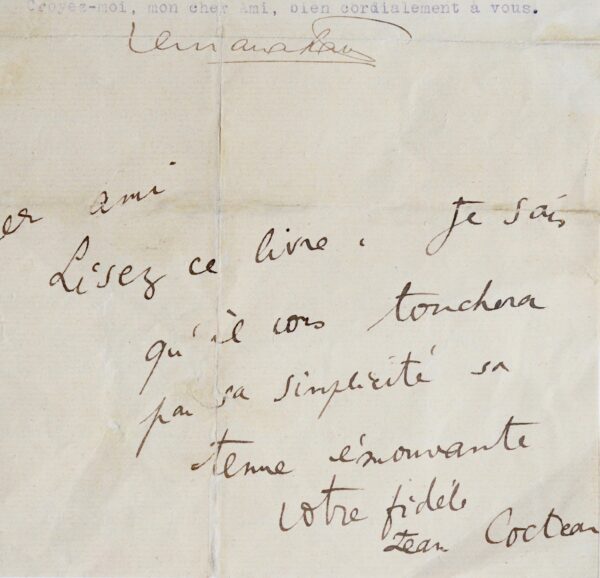 Croyez-moi, mon cher Ami, bien cordialement à vous.
er ami
Lisez ce livre. Je sais
qu'il vous touchera
par sa simplicité sa
tenue émouvante
votre fidèle
Jean Cocteau